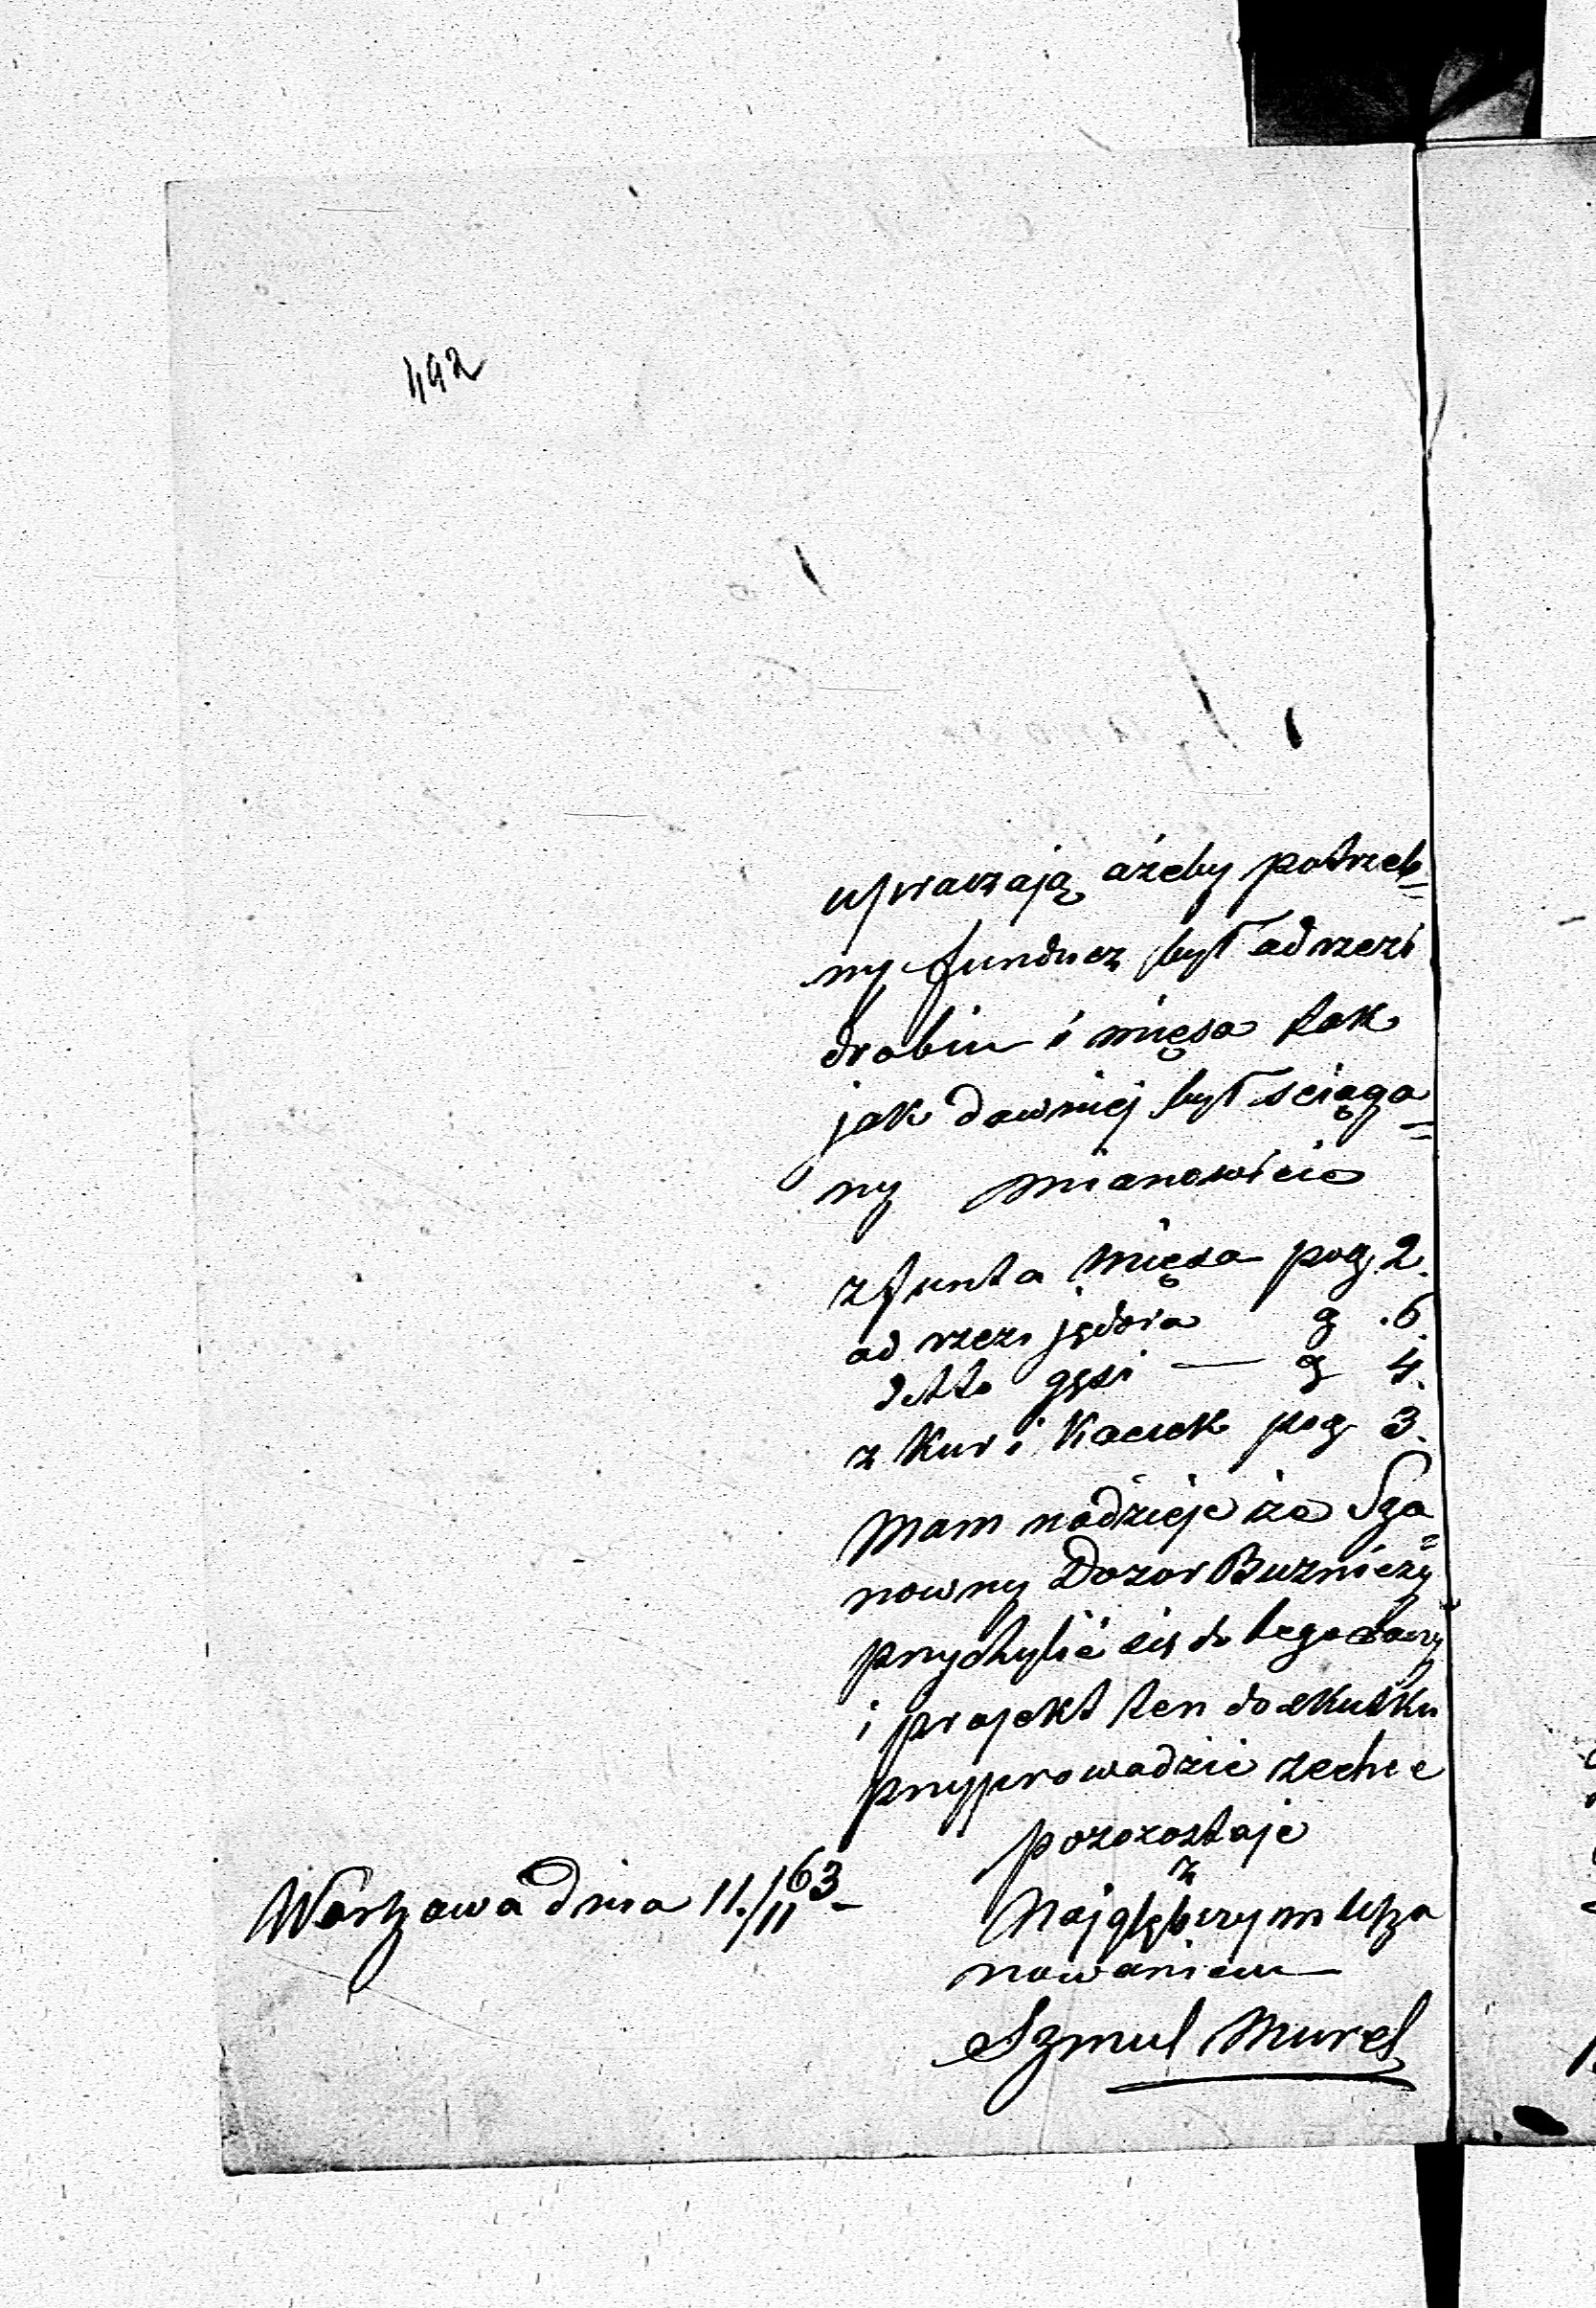 492
upraszają ażeby potrzeb=
ny fundusz był od rzezi
drobiu i mięsa tak
jak dawniej był sciąga=
ny mianowicie
z funta Mięsa po g. 2.
od rzezi jędora g. 6.
detto gęsi — g 4.
z Kur i Kaczek po g 3.
Mam nadzieje że Sza=
nowny Dozor Buzniczy
przychylić się do tego
i projekt ten do skutku
przyprowadzić zechce
pozozostaje
z
Najgłębszym usza
nowaniem
Warszawa dnia 11./11 63 –
Szmul Murel